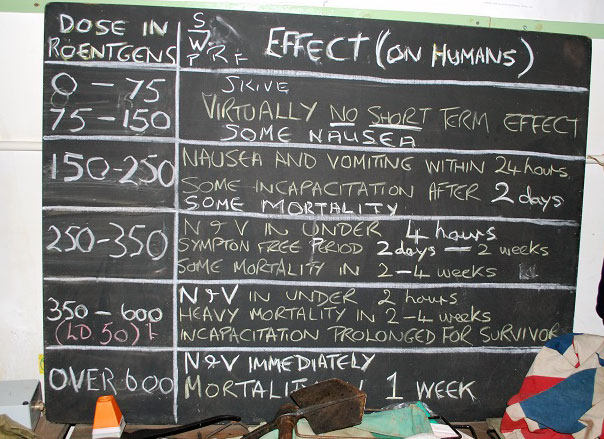 DOSE IN ROENTGENS
S
W
P R F
EFFECT (ON HUMANS)
SKIVE
0 - 75
VIRTUALLY NO SHORT TERM EFFECT
75 - 150
SOME NAUSEA
150-250
NAUSEA AND VOMITING WITHIN 24 hours.
SOME INCAPACITATION AFTER 2 days
SOME MORTALITY
250-350
N & V IN UNDER 4 hours
SYMPTON FREE PERIOD 2 days — 2 weeks
SOME MORTALITY IN 2-4 weeks
350 - 600
(LD 50)
N & V IN UNDER 2 hours
HEAVY MORTALITY IN 2-4 weeks
INCAPACITATION PROLONGED FOR SURVIVOR
OVER 600
N & V IMMEDIATELY
MORTALITY 1 WEEK